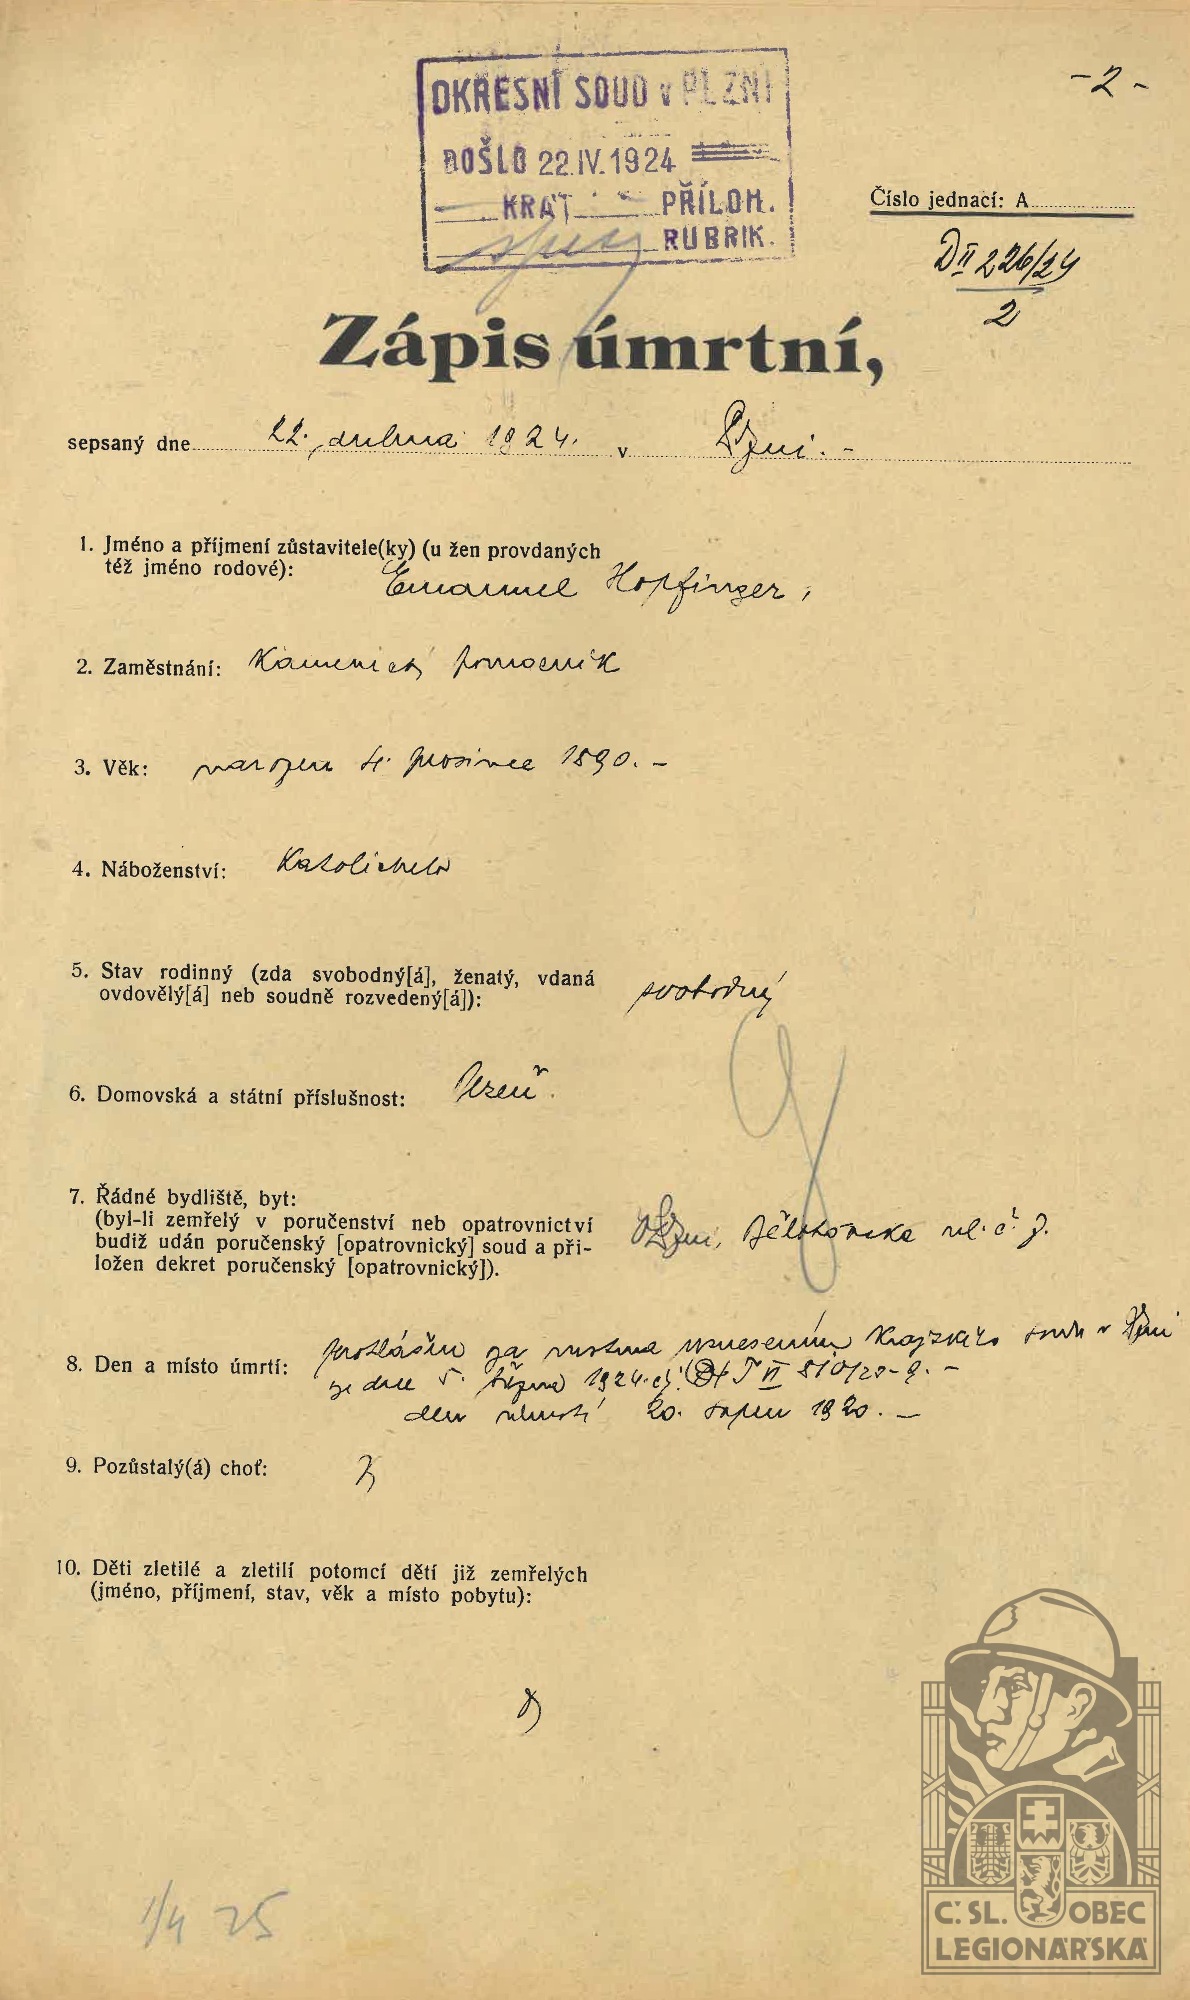 - 2 -
OKRESNÍ SOUD v PLZNI
DOŠLO 22.IV.1924
KRÁT PŘÍLOH.
RUBRIK.
Číslo jednací: A
D II 226/24
2
Zápis úmrtní,
sepsaný dne 22. dubna 1924. v Plzni. -
1. Jméno a příjmení zůstavitele(ky) (u žen provdaných
též jméno rodové):
Emanuel Hopfinger,
2. Zaměstnání: Kamenický pomocník
3. Věk: narozen 4. prosince 1890. -
4. Náboženství: Katolické
5. Stav rodinný (zda svobodný[á], ženatý, vdaná
ovdovělý[á] neb soudně rozvedený[á]):
svobodný
6. Domovská a státní příslušnost: Plzeň.
7. Řádné bydliště, byt:
(byl-li zemřelý v poručenství neb opatrovnictví
budiž udán poručenský [opatrovnický] soud a při-
ložen dekret poručenský [opatrovnický]).
Plzni, Bělohorská ul. č. 7.
prohlášen za mrtva usnesením Krajského soudu v Plzni
8. Den a místo úmrtí: ze dne 5. března 1924 čj. T VI 810/20-9. -
den úmrtí 20. srpen 1920. -
9. Pozůstalý(á) choť:
10. Děti zletilé a zletilí potomcí dětí již zemřelých
(jméno, příjmení, stav, věk a místo pobytu):
1/4 25
Č.SL. OBEC
LEGIONÁŘSKÁ